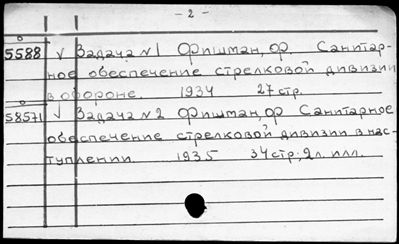 - 2 -
5588 √ Задача №1 Фришман, ор. Санитар-
ное обеспечение стрелковой дивизии
в обороне. 1934 27 стр.
58571 √ Задача №2 Фришман, ор Санитарное
обеспечение стрелковой дивизии в нас-
туплении. 1935 34 стр; 2 л. илл.